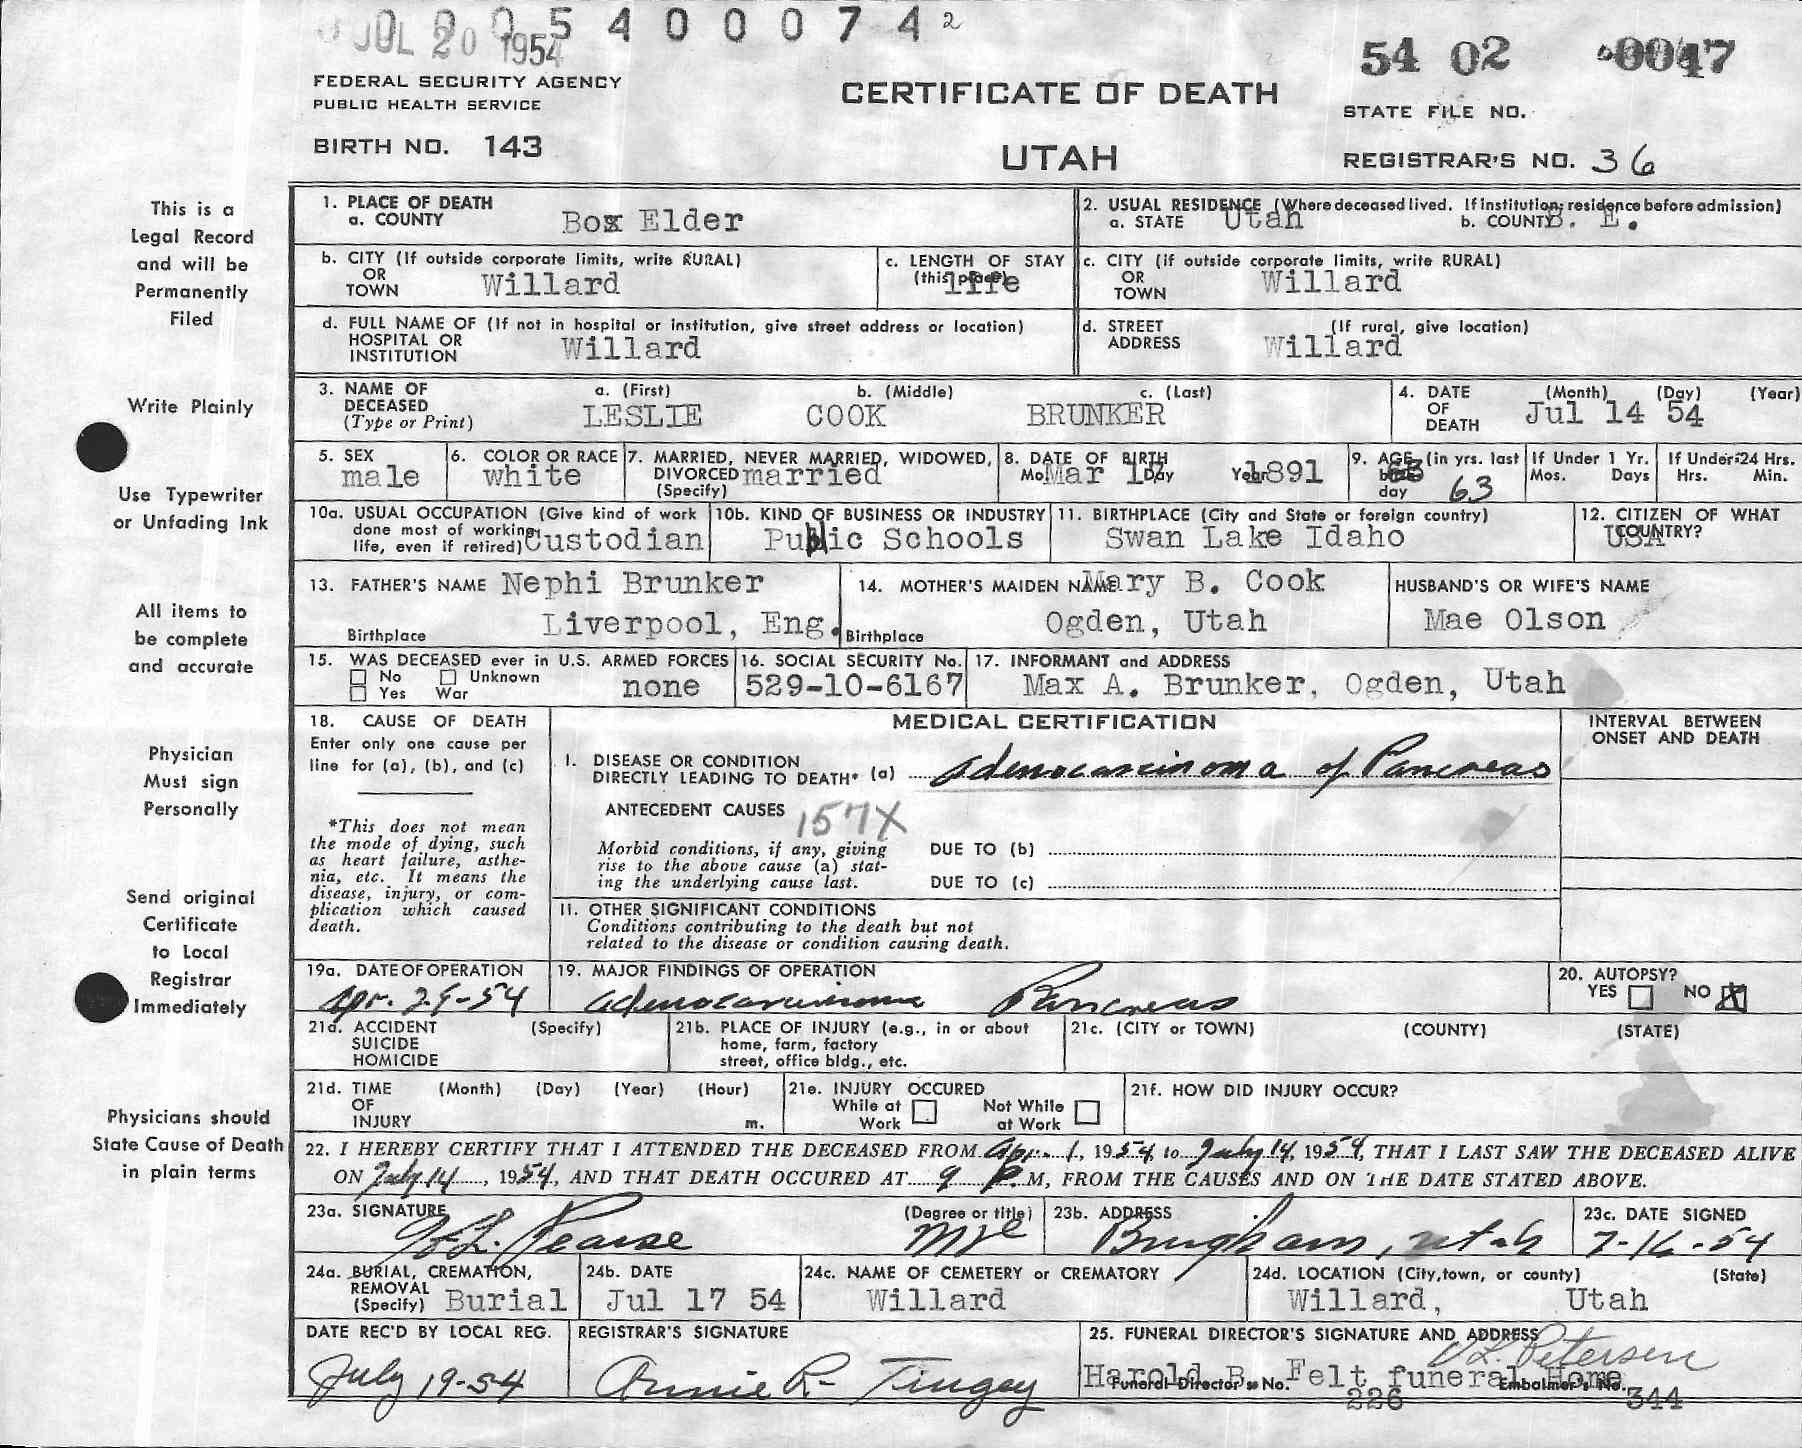 JUL 20 1954
0 0 0 5 4 0 0 0 7 4 2
54 02 0047
FEDERAL SECURITY AGENCY
PUBLIC HEALTH SERVICE
CERTIFICATE OF DEATH
STATE FILE NO.
BIRTH NO. 143
UTAH
REGISTRAR'S NO. 36
This is a
Legal Record
and will be
Permanently
Filed
Write Plainly
Use Typewriter
or Unfading Ink
All items to
be complete
and accurate
Physician
Must sign
Personally
Send original
Certificate
to Local
Registrar
Immediately
Physicians should
State Cause of Death
in plain terms
1. PLACE OF DEATH
a. COUNTY Box Elder
2. USUAL RESIDENCE (Where deceased lived. If institution; residence before admission)
a. STATE Utah b. COUNTY B. E.
b. CITY (If outside corporate limits, write RURAL)
OR
TOWN Willard
c. LENGTH OF STAY
(this place) life
c. CITY (if outside corporate limits, write RURAL)
OR
TOWN Willard
d. FULL NAME OF (If not in hospital or institution, give street address or location)
HOSPITAL OR
INSTITUTION Willard
d. STREET (If rural, give location)
ADDRESS Willard
3. NAME OF a. (First) b. (Middle) c. (Last)
DECEASED
(Type or Print) LESLIE COOK BRUNKER
4. DATE (Month) (Day) (Year)
OF
DEATH Jul 14 54
5. SEX
male
6. COLOR OR RACE
white
7. MARRIED, NEVER MARRIED, WIDOWED,
DIVORCED married
(Specify)
8. DATE OF BIRTH
Mo. Mar 17 Day Year 1891
9. AGE (in yrs. last
birth
day 63
If Under 1 Yr.
Mos. Days
If Under 24 Hrs.
Hrs. Min.
10a. USUAL OCCUPATION (Give kind of work
done most of working
life, even if retired) Custodian
10b. KIND OF BUSINESS OR INDUSTRY
Public Schools
11. BIRTHPLACE (City and State or foreign country)
Swan Lake Idaho
12. CITIZEN OF WHAT
COUNTRY? USA
13. FATHER'S NAME Nephi Brunker
Birthplace Liverpool, Eng.
14. MOTHER'S MAIDEN NAME Mary B. Cook
Birthplace Ogden, Utah
HUSBAND'S OR WIFE'S NAME
Mae Olson
15. WAS DECEASED ever in U.S. ARMED FORCES
No Unknown
Yes War none
16. SOCIAL SECURITY No.
529-10-6167
17. INFORMANT and ADDRESS
Max A. Brunker, Ogden, Utah
18. CAUSE OF DEATH
Enter only one cause per
line for (a), (b), and (c)
*This does not mean
the mode of dying, such
as heart failure, asthe-
nia, etc. It means the
disease, injury, or com-
plication which caused
death.
MEDICAL CERTIFICATION
INTERVAL BETWEEN
ONSET AND DEATH
I. DISEASE OR CONDITION
DIRECTLY LEADING TO DEATH* (a) Adenocarcinoma of Pancreas
ANTECEDENT CAUSES 157X
Morbid conditions, if any, giving
rise to the above cause (a) stat-
ing the underlying cause last.
DUE TO (b)
DUE TO (c)
11. OTHER SIGNIFICANT CONDITIONS
Conditions contributing to the death but not
related to the disease or condition causing death.
19a. DATE OF OPERATION
Apr. 29-54
19. MAJOR FINDINGS OF OPERATION
adenocarcinoma Pancreas
20. AUTOPSY?
YES NO X
21a. ACCIDENT (Specify)
SUICIDE
HOMICIDE
21b. PLACE OF INJURY (e.g., in or about
home, farm, factory
street, office bldg., etc.
21c. (CITY or TOWN) (COUNTY) (STATE)
21d. TIME (Month) (Day) (Year) (Hour)
OF
INJURY m.
21e. INJURY OCCURED
While at Work Not While at Work
21f. HOW DID INJURY OCCUR?
22. I HEREBY CERTIFY THAT I ATTENDED THE DECEASED FROM Apr. 1, 1954, to July 14, 1954, THAT I LAST SAW THE DECEASED ALIVE
ON July 14, 1954, AND THAT DEATH OCCURED AT 9 P.M, FROM THE CAUSES AND ON THE DATE STATED ABOVE.
23a. SIGNATURE (Degree or title)
Pearse
23b. ADDRESS
Brigham, Utah
23c. DATE SIGNED
7-16-54
24a. BURIAL, CREMATION,
REMOVAL
(Specify) Burial
24b. DATE
Jul 17 54
24c. NAME OF CEMETERY or CREMATORY
Willard
24d. LOCATION (City, town, or county) (State)
Willard, Utah
DATE REC'D BY LOCAL REG.
July 19-54
REGISTRAR'S SIGNATURE
Annie R. Tingey
25. FUNERAL DIRECTOR'S SIGNATURE AND ADDRESS
Petersen
Harold B. Felt funeral Home
Funeral Director's No. 226 Embalmer's No. 344